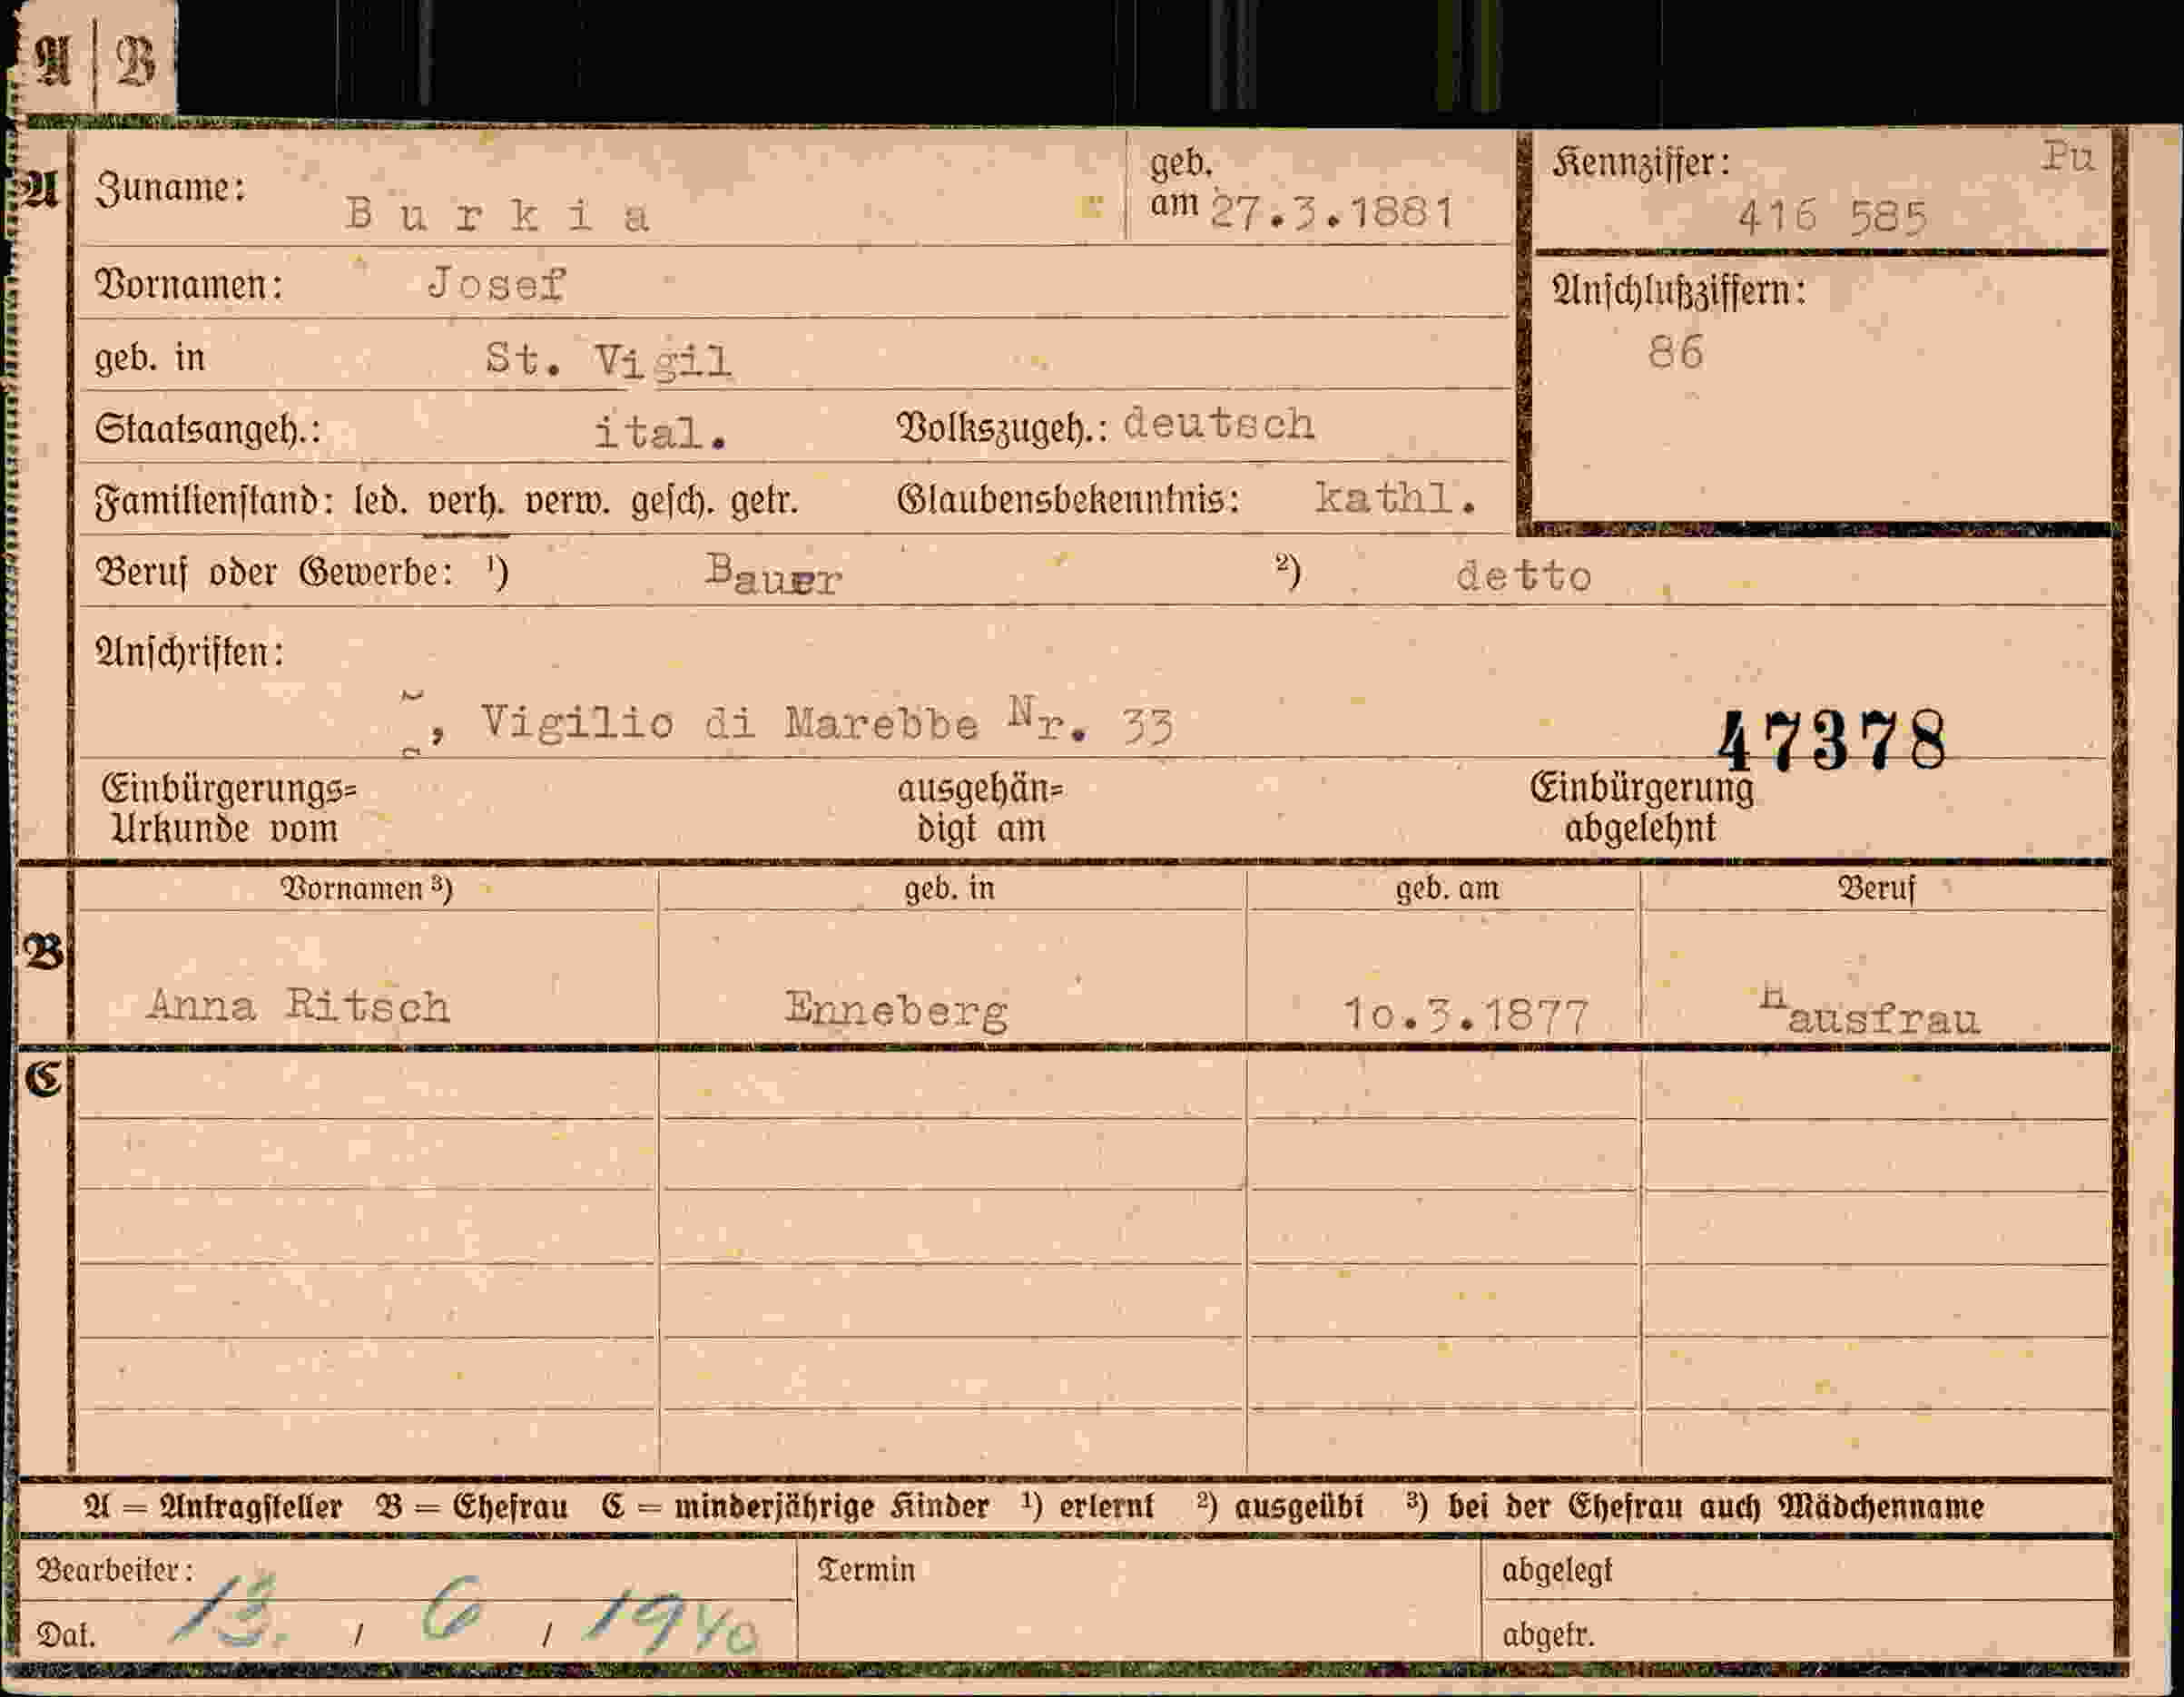 A | B
A Zuname: Burkia geb. am 27.3.1881 Kennziffer: Pu
416 585
Vornamen: Josef Anschlußziffern:
86
geb. in St. Vigil
Staatsangeh.: ital. Volkszugeh.: deutsch
Familienstand: led. verh. verw. gesch. getr. Glaubensbekenntnis: kathl.
Beruf oder Gewerbe: ¹) Bauer ²) detto
Anschriften:
, Vigilio di Marebbe Nr. 33 47378
Einbürgerungs= ausgehän= Einbürgerung
Urkunde vom digt am abgelehnt
Vornamen ³) geb. in geb. am Beruf
B
Anna Ritsch Enneberg 10.3.1877 Hausfrau
C
A = Antragsteller B = Ehefrau C = minderjährige Kinder ¹) erlernt ²) ausgeübt ³) bei der Ehefrau auch Mädchenname
Bearbeiter: Termin abgelegt
Dat. 13. / 6 / 1940 abgetr.